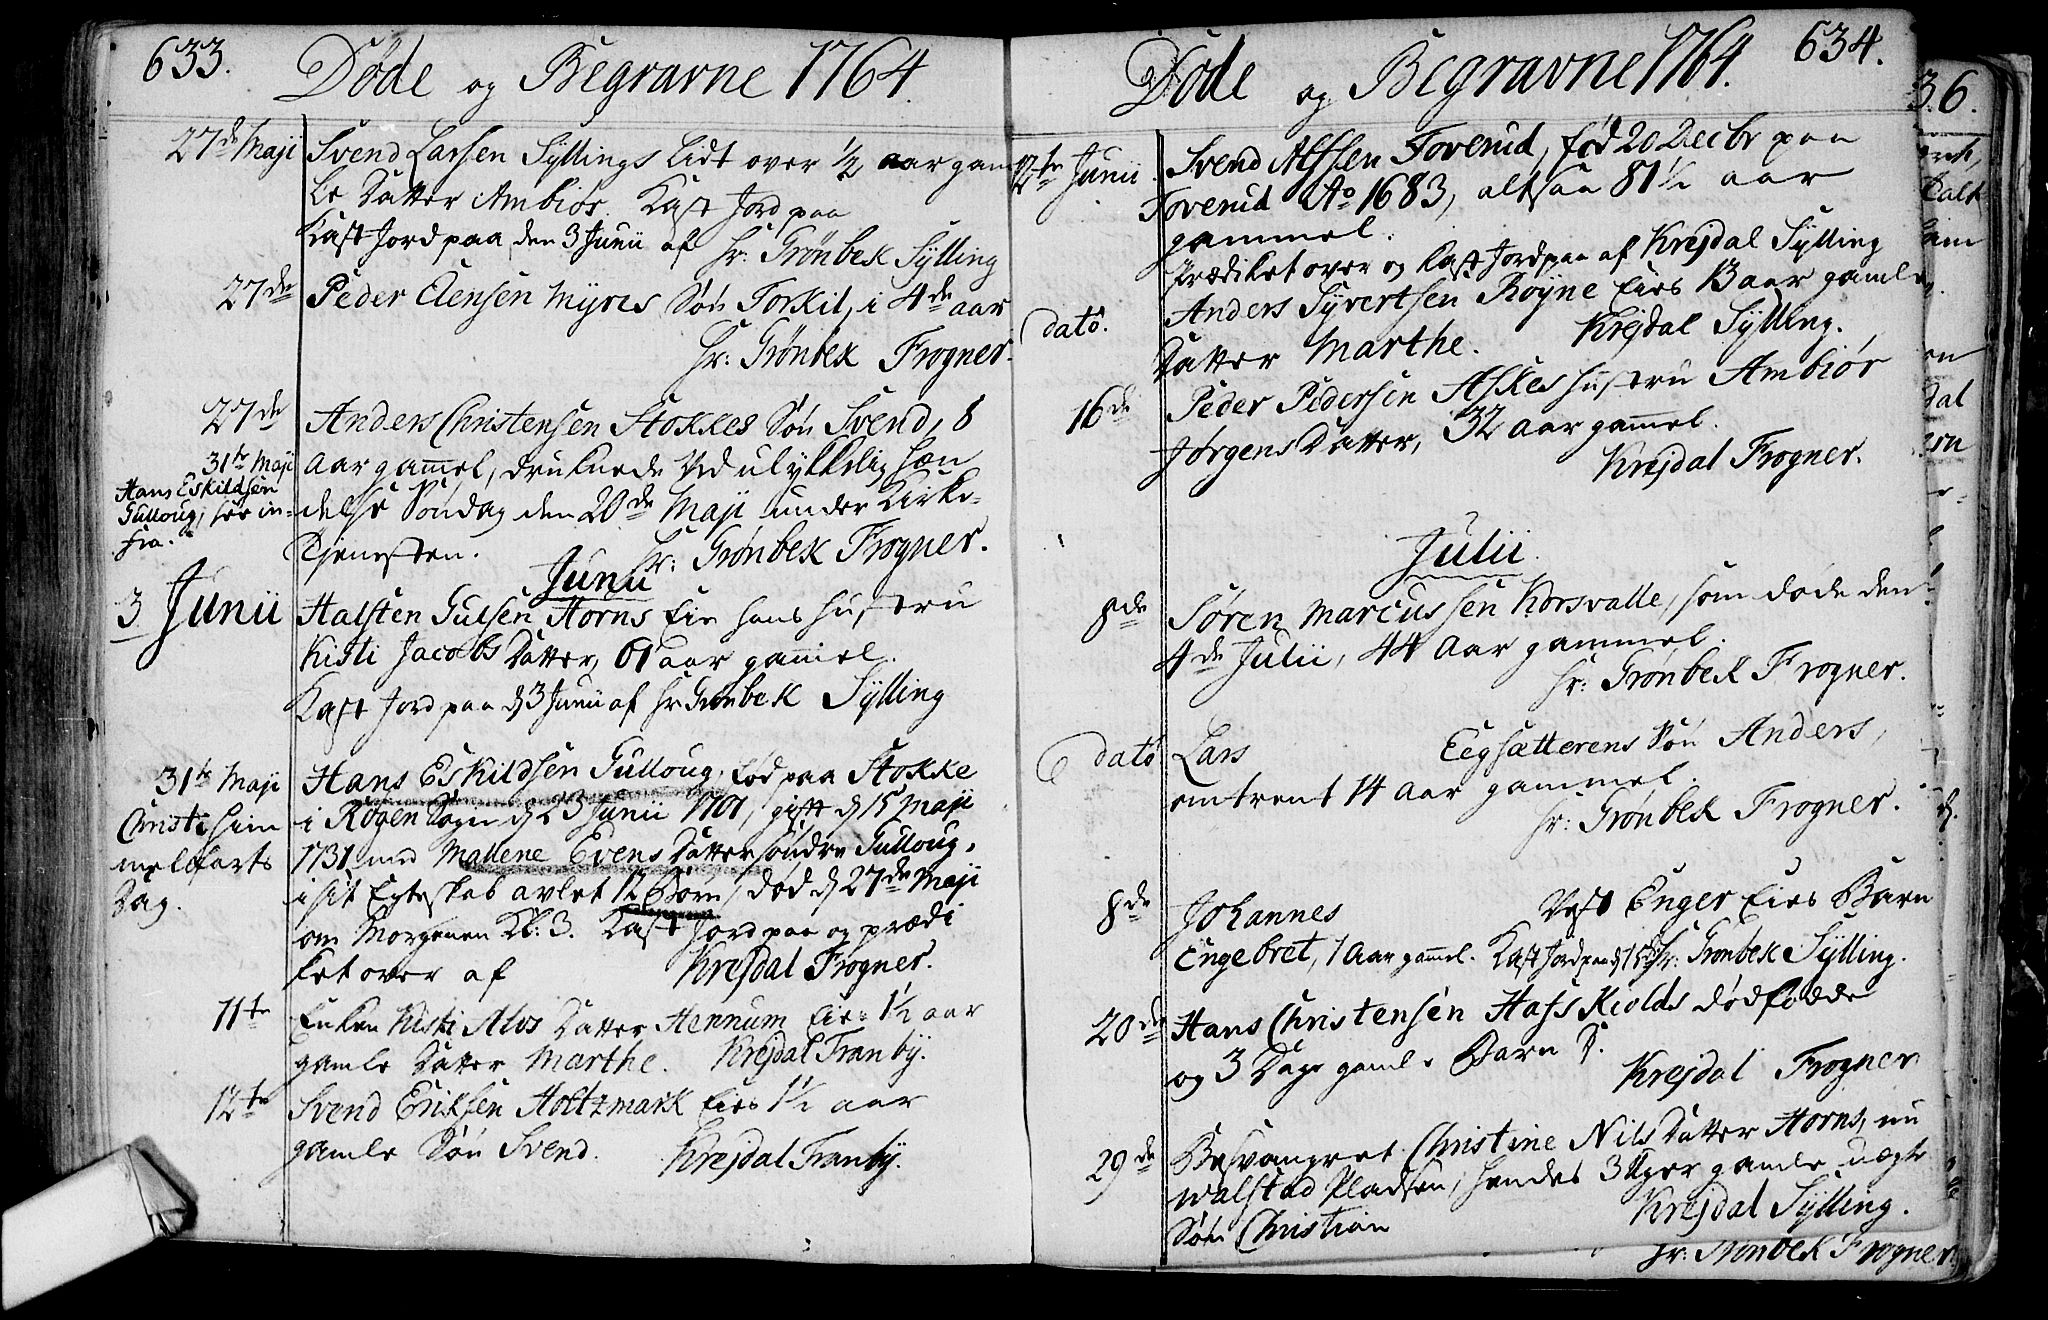 633.
Døde og Begravne 1764.
27de Maji Svend Larsen Syllings lidt over 1/2 aar gam
le Datter Ambiør. Kast Jord paa
Kast Jord paa den 3 Junii af Hr: Grønbek Sylling
27de Peder Elensen Myres Søn Torkil, i 4de aar
Hr: Grønbek Frogner.
27de Anders Christensen Stokkes Søn Svend, 8
Aar gammel, druknede ved ulykkelig hæn
delse Søndag den 20de Maji under Kirke-
Tjenesten. Hr: Grønbek Frogner.
31te Maji
Hans Eskildsen
Gulloug, see in-
fra.
Junii
3 Junii Halsten Gulsen Horns Eie hans hustru
Kisti Jacobs Datter, 61 aar gammel.
Kast Jord paa d 3 Junii af Hr Grønbek Sylling
31te Maji
Christi him
melfarts
Dag.
Hans Eskildsen Gulloug, fød paa Stokke
i Røgen Sogn d 23 Junii 1701, gift d 15 Maji
1731 med Malene Evens Datter søndre Gulloug,
i sit Egteskab avlet 12 Børn, død d 27de Maji
om Morgenen Kl: 3. Kast Jord paa og prædi
ket over af Krejdal Frogner.
11te Enken Kisti Alvs Datter Hennum Eie 1 1/2 aar
gamle Datter Marthe. Krejdal Tranby.
12te Svend Eriksen Holtzmark Eies 1 1/2 aar
gamle Søn Svend. Krejdal Tranby.
634.
Døde og Begravne 1764.
12te Junii Svend Alfsen Toverud, fød 20 Decbr paa
Toverud Ao 1683, altsaa 81 1/2 aar
gammel.
Prædiket over og Kast Jord paa af Krejdal Sylling
dato. Anders Syvertsen Røyne Eies 13 aar gamle
Datter Marthe. Krejdal Sylling.
16de Peder Pedersen Askes Hustru Ambiør
Jørgens Datter, 32 Aar gammel.
Krejdal Frogner.
Julii
8de Søren Marcussen Korsvalle, som døde den
4de Julii, 44 Aar gammel.
Hr: Grønbek Frogner.
dato Lars Eegsætterens Søn Anders,
omtrent 14 Aar gammel.
Hr: Grønbek Frogner.
8de Johannes Vest Enger Eies Barn
Engebret, 1 Aar gammel. Kast Jord paa d 15 Hr: Grønbek Sylling.
20de Hans Christensen Hasskiolds dødfødde
og 3 Dage gamle Barn
Krejdal Frogner
29de Besvangret Christine Nils Datter Horns, nu
Walstad Pladsen, hendes 3 Uger gamle uægte
Søn Christian Krejdal Sylling.
Hr: Grønbek Frogner.
36.